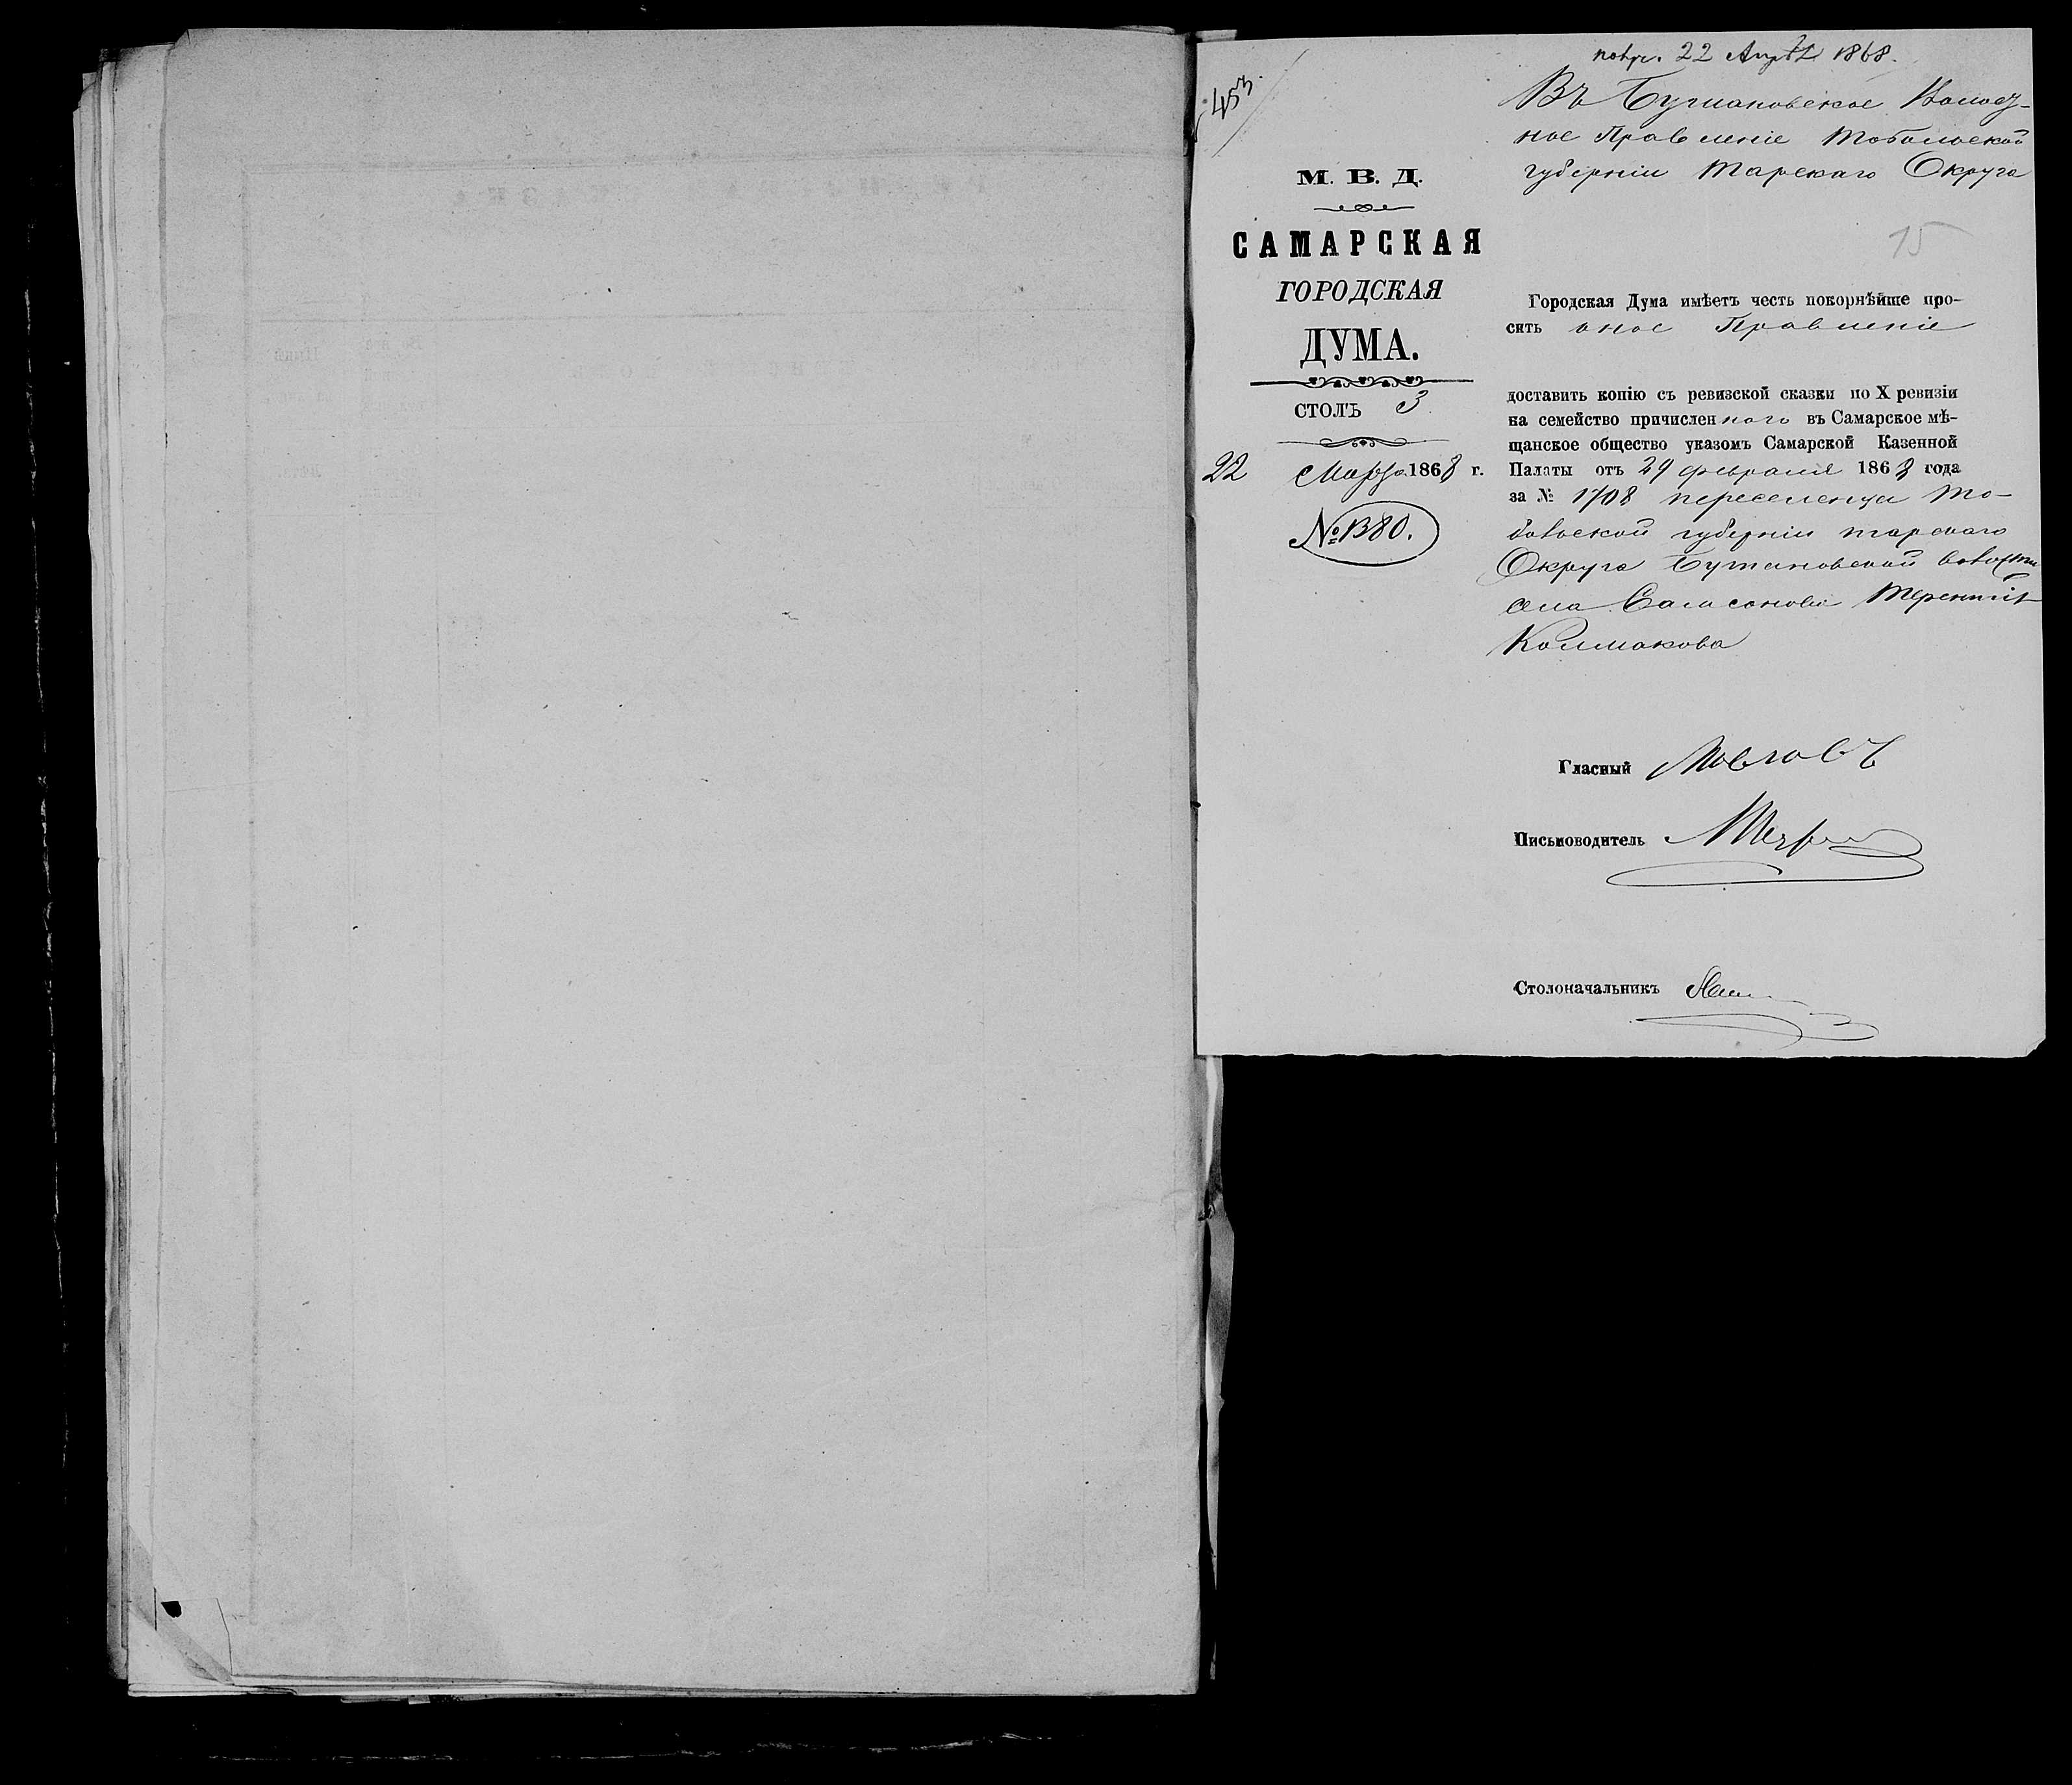 получ. 22 Апрѣля 1868.
453.
Въ Бутаковское Волост-
ное Правленіе Тобольской
губерніи Тарскаго Округа
15
М. В. Д.
САМАРСКАЯ
ГОРОДСКАЯ
ДУМА.
СТОЛЪ 3.
22 Марта 1868 г.
№ 1380.
Городская Дума имѣетъ честь покорнѣйше про-
сить оное Правленіе
доставить копію съ ревизской сказки по X ревизіи
на семейство причисленнаго въ Самарское мѣ-
щанское общество указомъ Самарской Казенной
Палаты отъ 29 февраля 1868 года
за № 1708 переселенца То-
больской губерніи тарскаго
Округа Бутаковской волости
села Самсонова Терентія
Колмакова
Гласный
Письмоводитель
Столоначальникъ